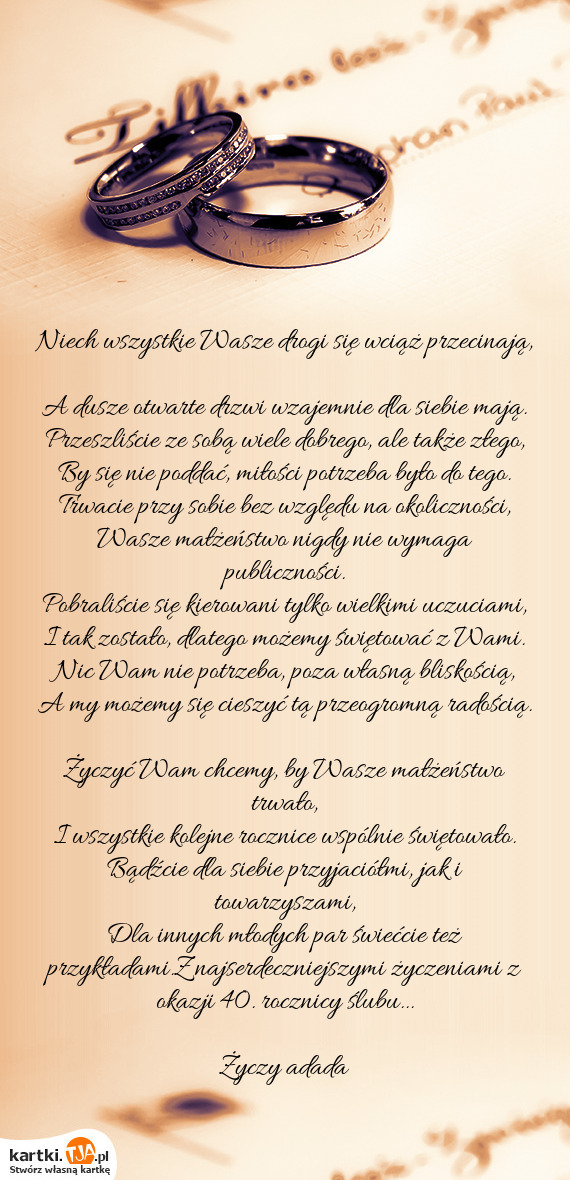 Niech wszystkie Wasze drogi się wciąż przecinają,
A dusze otwarte drzwi wzajemnie dla siebie mają.
Przeszliście ze sobą wiele dobrego, ale także złego,
By się nie poddać, miłości potrzeba było do tego.
Trwacie przy sobie bez względu na okoliczności,
Wasze małżeństwo nigdy nie wymaga
publiczności.
Pobraliście się kierowani tylko wielkimi uczuciami,
I tak zostało, dlatego możemy świętować z Wami.
Nic Wam nie potrzeba, poza własną bliskością,
A my możemy się cieszyć tą przeogromną radością.
Życzyć Wam chcemy, by Wasze małżeństwo
trwało,
I wszystkie kolejne rocznice wspólnie świętowało.
Bądźcie dla siebie przyjaciółmi, jak i
towarzyszami,
Dla innych młodych par świećcie też
przykładami Z najserdeczniejszymi życzeniami z
okazji 40. rocznicy ślubu...
Życzy adada
kartki.TJA.pl
Stwórz własną kartkę